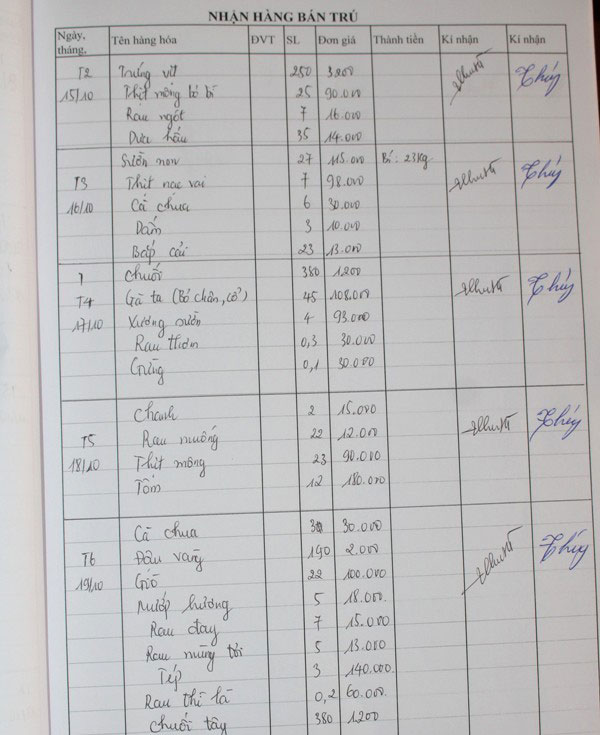 NHẬN HÀNG BÁN TRÚ
Ngày, tháng, Tên hàng hóa ĐVT SL Đơn giá Thành tiền Kí nhận Kí nhận
T2 Trứng vịt 250 3.200 Thúy
15/10 Thịt mông bỏ bì 25 90.000
Rau ngót 7 16.000
Dưa hấu 35 14.000
Sườn non 27 115.000 Bí: 23kg Thúy
T3 Thịt nạc vai 7 98.000
16/10 Cà chua 6 30.000
Dấm 3 10.000
Bắp cải 23 13.000
Chuối 380 1.200
T4 Gà ta (Bỏ chân, cổ) 45 108.000 Thúy
17/10 Xương sườn 4 93.000
Rau thơm 0,3 30.000
Gừng 0,1 30.000
Chanh 2 15.000 Thúy
T5 Rau muống 22 12.000
18/10 Thịt mông 23 90.000
Tôm 12 180.000
Cà chua 3 30.000
T6 Đậu vàng 190 2.000 Thúy
19/10 Giò 22 100.000
Mướp hương 5 18.000
Rau đay 7 15.000
Rau mùng tơi 5 13.000
Tép 3 140.000
Rau thì là 0,2 60.000
Chuối tây 380 1.200